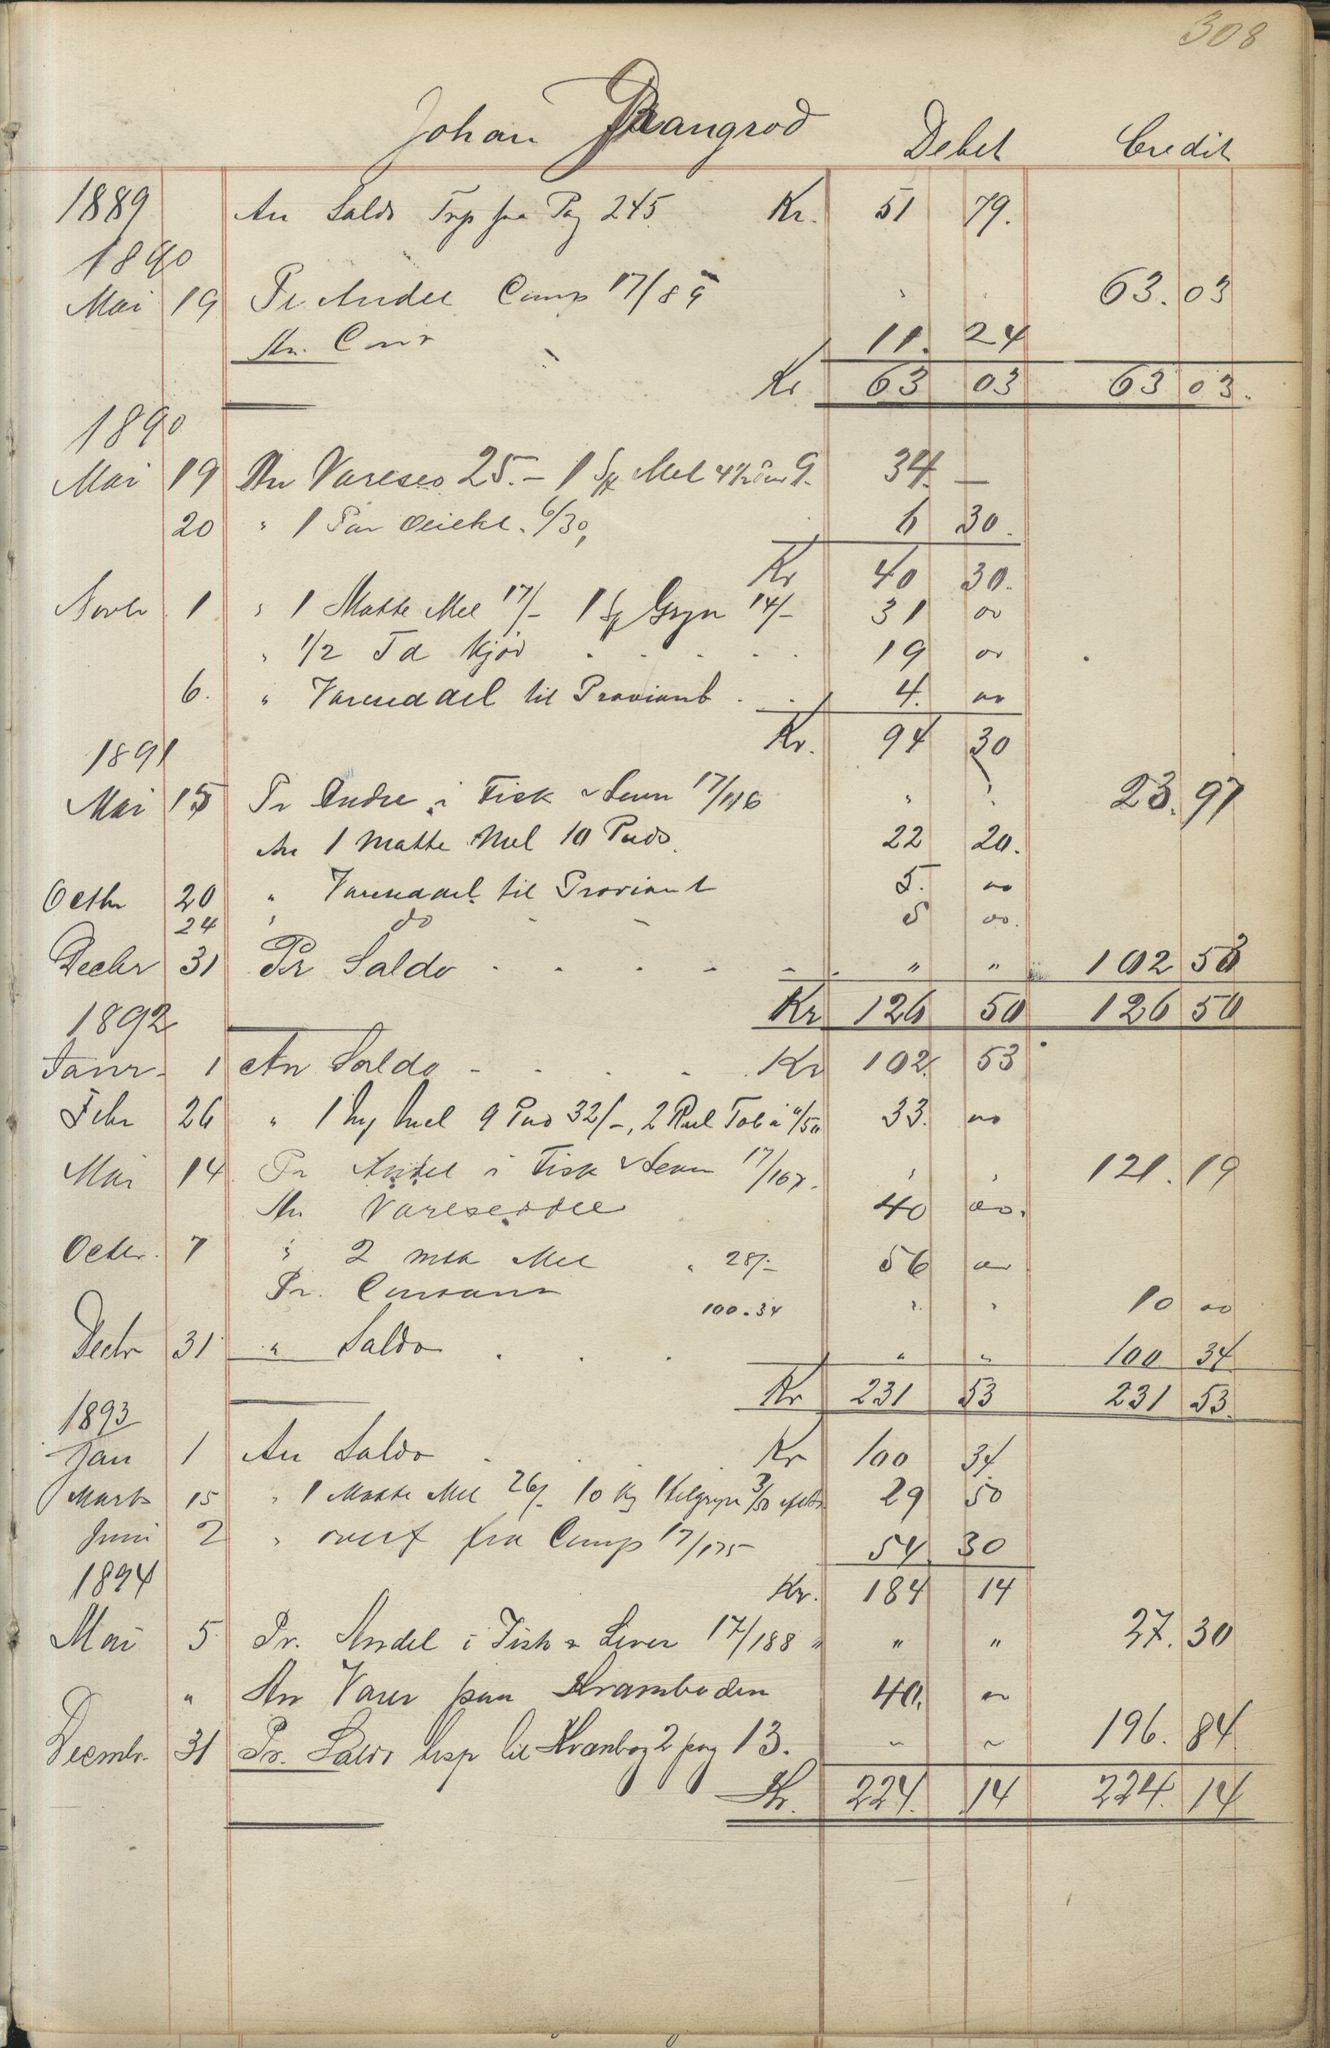 308
Johan Brangrod Debet Credit
1889 An Saldo Trp fra Pag 245. Kr. 51 79.
1890
Mai 19 Pr Andel Comp 17/89 " " 63.03
An. Cont 11. 24
Kr 63 03 63 03.
1890
Mai 19 An Varesed 25.- 1 Sk Mel 9. 34. —
20 " 1 Par 6/30, 6 30.
Kr 40 30.
Novbr 1 " 1 Matte Mel 17/- 1 Sk Gryn 14/- 31 00
" 1/2 Td Kjød . . . . . 19 00
6. " Vareseddel til Proviant . . 4. 00
Kr. 94 30
1891
Mai 15 Pr Andel i Fisk & Lever 17/116 " " 23.97
An 1 Matte Mel 10 Puds. 22 20.
Octbr 20 " Vareseddel til Proviant 5. 00
24 " do - - 5 00.
Decbr 31 Pr Saldo . . . - - . . " " 102 53
Kr 126 50 126 50
1892
Janr. 1 An Saldo - . . . . Kr 102. 53
Febr 26 " 1 Mel 9 Pud 32/-, 2 Rul Tob á 0/50 33. 00
Mai 14 Pr Andel i Fisk & Lever 17/167. " " 121.19
An Vareseddel 40 00.
Octbr. 7 " 2 mtr Mel " 28/- 56 00
Pr. Contant 100.34 " " 10 00
Decbr 31 " Saldo . . . " " 100 34
Kr 231 53 231 53.
1893
Jan 1 An Saldo . . . Kr 100 34
Marts 15 " 1 Matte Mel 26/- 10 Kg 3/50 29 50
Juni 2 " overf fra Comp 17/175 54 30
1894
Kr. 184 14
Mai 5. Pr. Andel i Fisk & Lever 17/188 " " " 27.30
" An Varer paa Kramboden 40. 00
Decmbr. 31 Pr. Saldo trsp til Krambog 2 pag 13. " " 196.84
Kr. 224. 14 224. 14